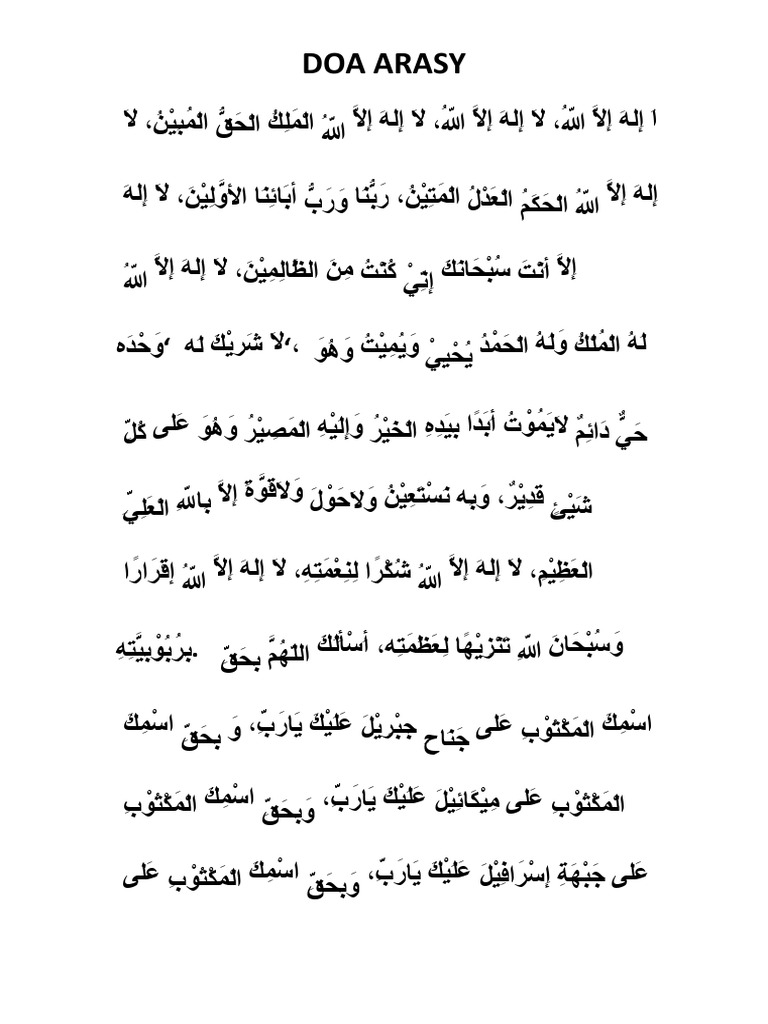 DOA ARASY
ا إلهَ إلاَّ اللهُ، لا إلهَ إلاَّ اللهُ، لا إلهَ إلاَّ اللهُ الْمَلِكُ الْحَقُّ الْمُبِيْنُ، لا
إلهَ إلاَّ اللهُ الْحَكَمُ الْعَدْلُ الْمَتِيْنُ، رَبُّنَا وَرَبُّ أبَائِنَا الأوَّلِيْنَ، لا إلهَ
إلاَّ أنْتَ سُبْحَانَكَ إنِّيْ كُنْتُ مِنَ الظَّالِمِيْنَ، لا إلهَ إلاَّ اللهُ
وَحْدَه‘ لاَ شَرِيْكَ له‘، لهُ الْمُلْكُ وَلهُ الْحَمْدُ يُحْيِيْ وَيُمِيْتُ وَهُوَ
حَيٌّ دَائِمٌ لايَمُوْتُ أبَدًا بِيَدِهِ الْخَيْرُ وَإلَيْهِ الْمَصِيْرُ وَهُوَ عَلى كُلِّ
شَيْئٍ قدِيْرٌ، وَبِه نَسْتَعِيْنُ وَلاحَوْلَ وَلاقوَّةَ إلاَّ بِاللهِ الْعَلِيِّ
الْعَظِيْمِ، لا إلهَ إلاَّ اللهُ شُكْرًا لِنِعْمَتِهِ، لا إلهَ إلاَّ اللهُ إقرَارًا
بِرُبُوْبِيَّتِهِ. وَسُبْحَانَ اللهِ تَنْزِيْهًا لِعَظمَتِه، أسْألُكَ اللهُمَّ بِحَقِّ
اسْمِكَ الْمَكْتُوْبِ عَلى جَنَاح جِبْرِيْلَ عَلَيْكَ يَارَبِّ، وَ بِحَقِّ اسْمِكَ
الْمَكْتُوْبِ عَلى مِيْكَائِيْلَ عَلَيْكَ يَارَبِّ، وَبِحَقِّ اسْمِكَ الْمَكْتُوْبِ
عَلى جَبْهَةِ إسْرَافِيْلَ عَلَيْكَ يَارَبِّ، وَبِحَقِّ اسْمِكَ الْمَكْتُوْبِ عَلى